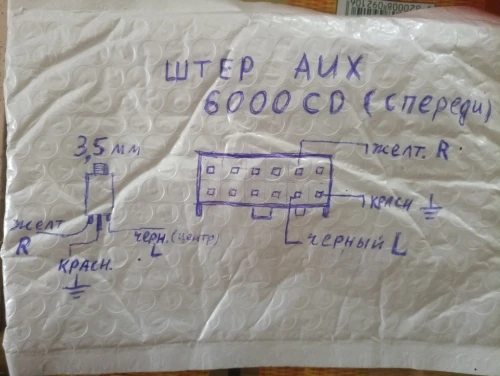 ШТЕР AUX
6000CD (СПЕРЕДИ)
3,5 мм
ЖЕЛТ. R
ЖЕЛТ
R
ЧЕРН. (ЦЕНТР)
L
КРАСН
КРАСН.
ЧЕРНЫЙ L